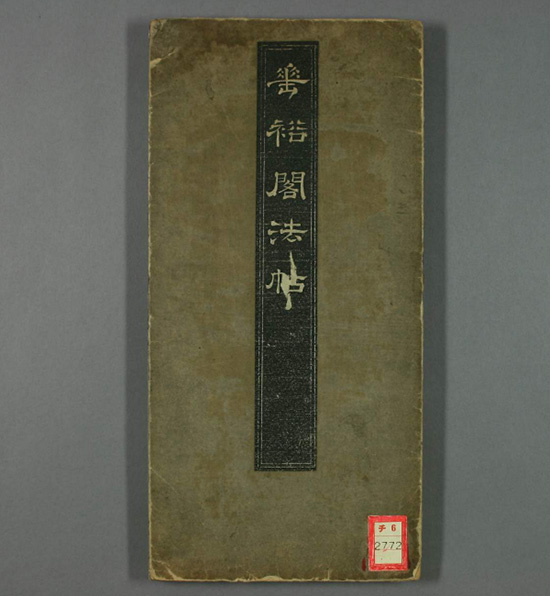 垂裕閣法帖
チ 6
2772